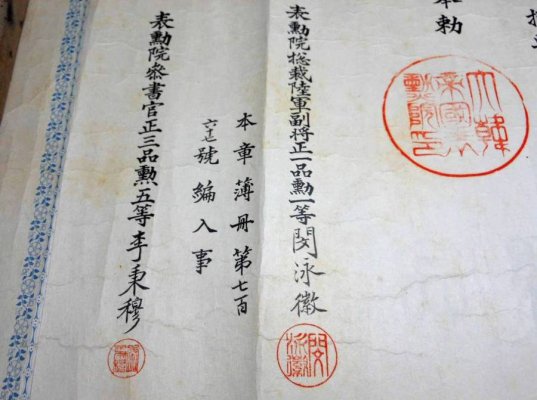 奉勅
大韓
帝國表
勳院印
表勳院捴裁陸軍副將正一品勳一等閔泳徽
閔
泳徽
本章簿冊第七百
六十七號編入事
表勳院參書官正三品勳五等李秉穆